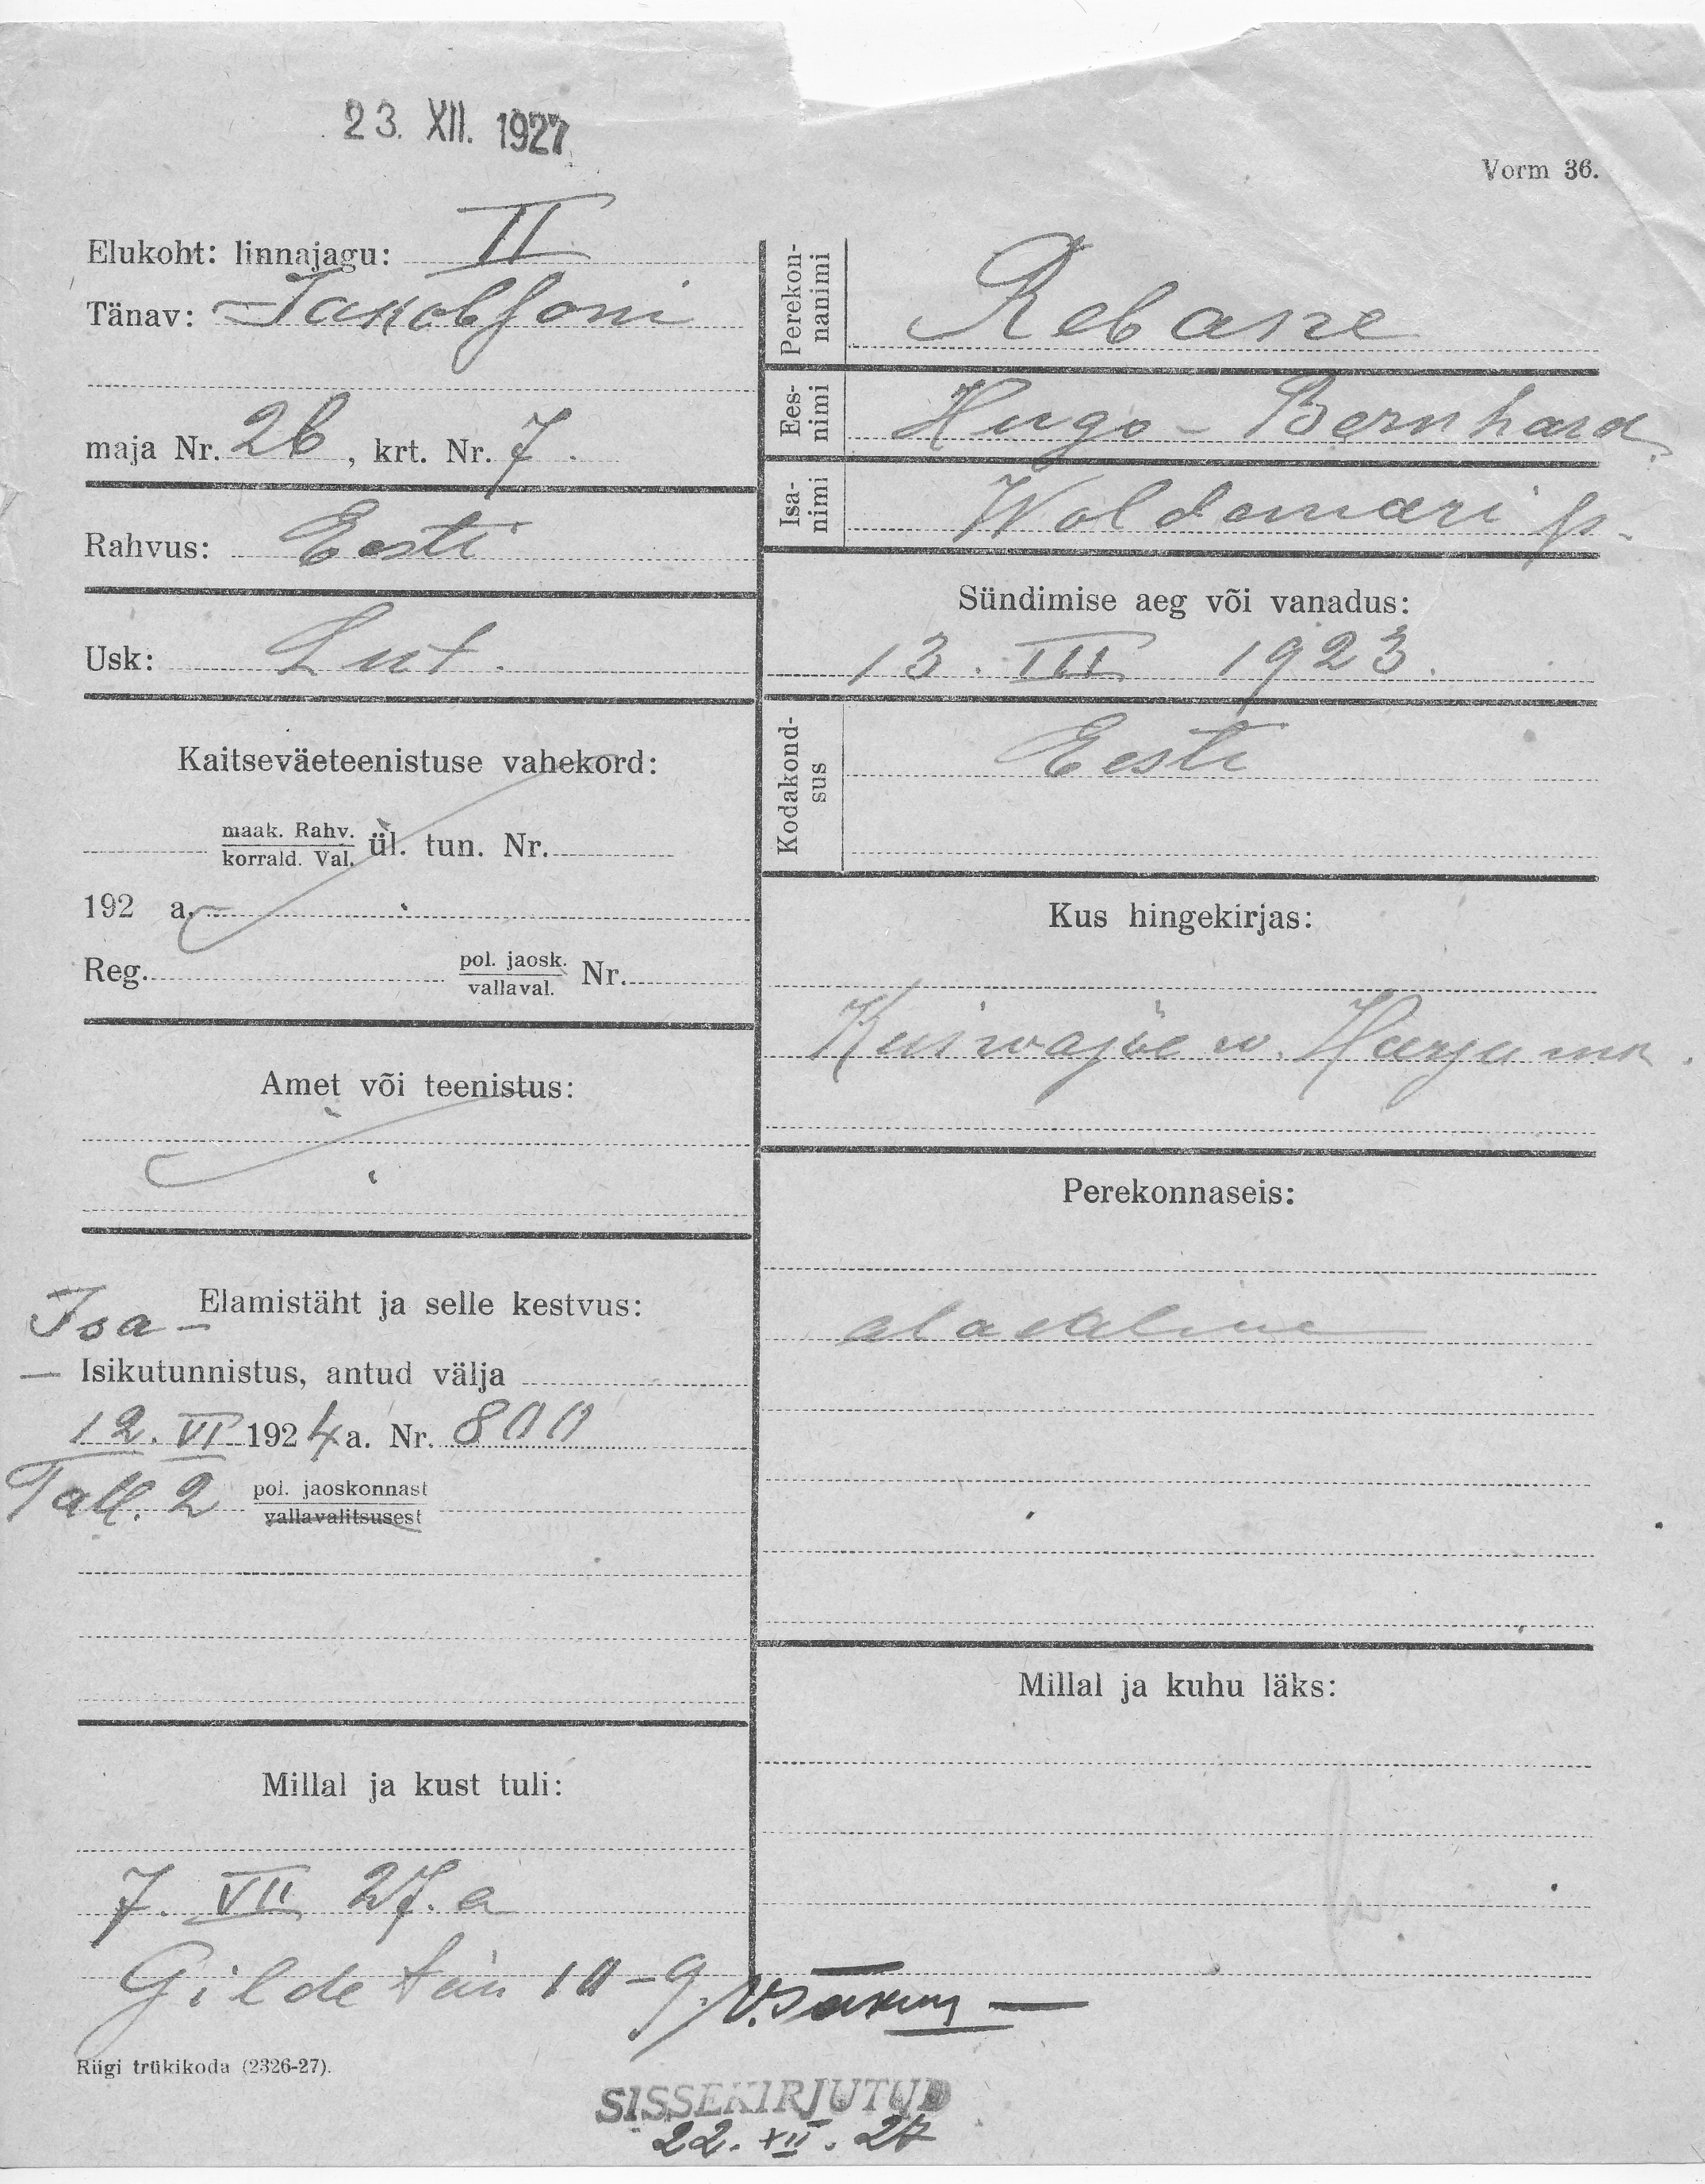 23. XII. 1927
Vorm 36.
Elukoht: linnajagu: II
Tänav: Jakobsoni
maja Nr. 26, krt. Nr. 7.
Rahvus: Eesti
Usk: Lut.
Kaitseväeteenistuse vahekord:
maak. Rahv.
korrald. Val. ül. tun. Nr.
192 a.
Reg. pol. jaosk.
vallaval. Nr.
Amet või teenistus:
Elamistäht ja selle kestvus:
Isa-
— Isikutunnistus, antud välja
12. VI 1924 a. Nr. 800
Tall. 2 pol. jaoskonnast
vallavalitsusest
Millal ja kust tuli:
7. VII 27. a
Gilde tän 10-9.
Riigi trükikoda (2326-27).
Perekon-
nanimi Rebane
Ees-
nimi Hugo-Bernhard
Isa-
nimi Woldemari p.
Sündimise aeg või vanadus:
13. III 1923.
Kodakond-
sus Eesti
Kus hingekirjas:
Kuiwajõe w. Harju mk.
Perekonnaseis:
alaealine
Millal ja kuhu läks:
SISSEKIRJUTUD
22. XII. 27